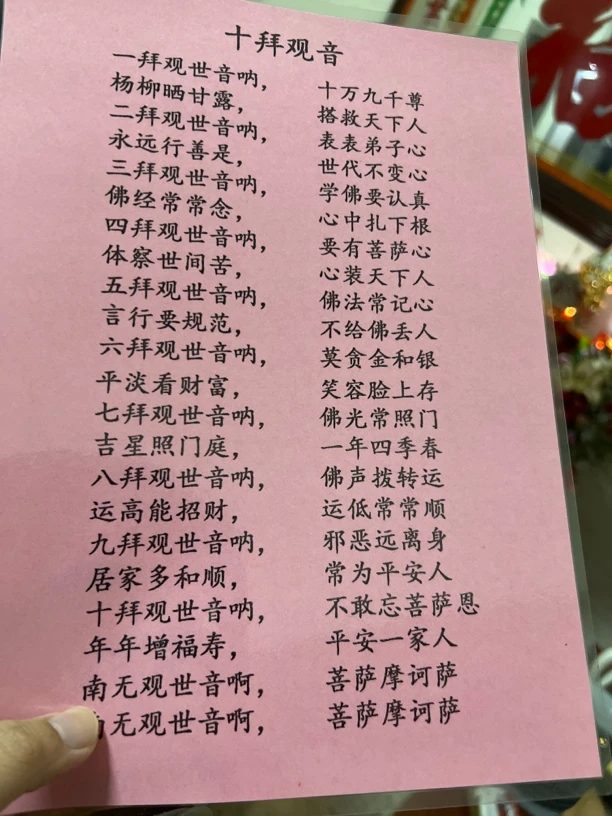 十拜观音
一拜观世音呐， 十万九千尊
杨柳晒甘露， 搭救天下人
二拜观世音呐， 表表弟子心
永远行善是， 世代不变心
三拜观世音呐， 学佛要认真
佛经常常念， 心中扎下根
四拜观世音呐， 要有菩萨心
体察世间苦， 心装天下人
五拜观世音呐， 佛法常记心
言行要规范， 不给佛丢人
六拜观世音呐， 莫贪金和银
平淡看财富， 笑容脸上存
七拜观世音呐， 佛光常照门
吉星照门庭， 一年四季春
八拜观世音呐， 佛声拨转运
运高能招财， 运低常常顺
九拜观世音呐， 邪恶远离身
居家多和顺， 常为平安人
十拜观世音呐， 不敢忘菩萨恩
年年增福寿， 平安一家人
南无观世音啊， 菩萨摩诃萨
无观世音啊， 菩萨摩诃萨